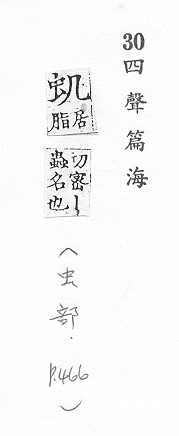 30四聲篇海
虮
居
脂
切密丨
蟲名也
(虫部.p.466)